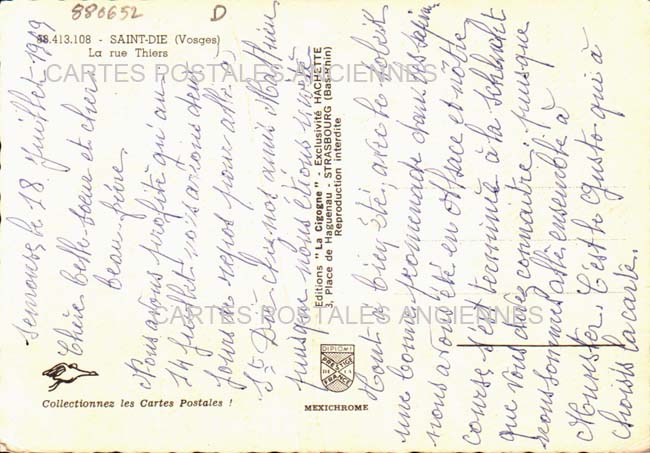 880652
D
88.413.108 - SAINT-DIE (Vosges)
La rue Thiers
CARTES POSTALES ANCIENNES
le 18 Juillet
Chère belle soeur et cher
beau frère.
Nous avons profité qu'au
14 Juillet nous avions deux
jours de repos pour aller à
St Dié chez nos amis
puisque nous étions invité
Editions "La Cigogne" - Exclusivité HACHETTE
3, Place de Haguenau - STRASBOURG (Bas-Rhin)
Reproduction interdite
Tout a bien été, avec le
une bonne promenade dans
nous avons été en Alsace et nôtre
course s'est terminée à la Schlucht
que vous devez connaître, puisque
nous sommes allé ensemble à
Munster. C'est le Gusto qui à
choisis la carte.
CARTES POSTALES ANCIENNES
DIPLOME
PRESTIGE
FRANCE
Collectionnez les Cartes Postales !
MEXICHROME